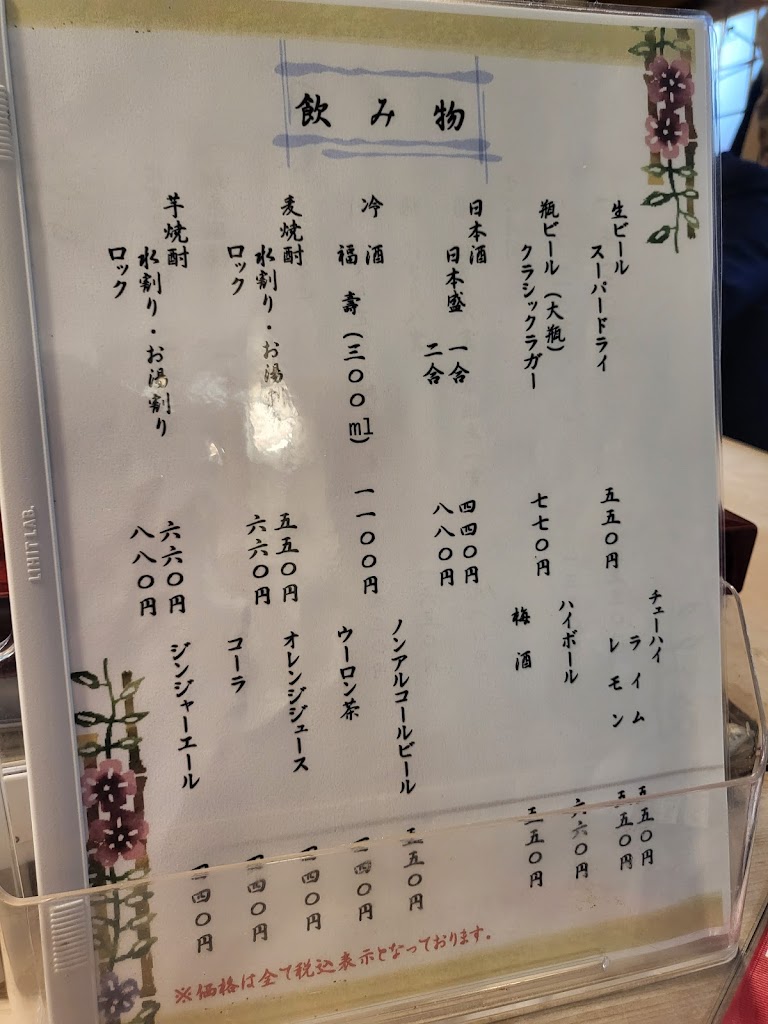 飲み物
生ビール
スーパードライ 五五〇円
瓶ビール（大瓶）
クラシックラガー 七七〇円
日本酒
日本盛 一合 四四〇円
二合 八八〇円
冷酒
福寿（三〇〇ml） 一一〇〇円
麦焼酎
水割り・お湯割り 五五〇円
ロック 六六〇円
芋焼酎
水割り・お湯割り 六六〇円
ロック 八八〇円
チューハイ
ライム 五五〇円
レモン 五五〇円
ハイボール 六六〇円
梅酒 五五〇円
ノンアルコールビール 五五〇円
ウーロン茶 四四〇円
オレンジジュース 四四〇円
コーラ 四四〇円
ジンジャーエール 四四〇円
※価格は全て税込表示となっております。
LIHIT LAB.